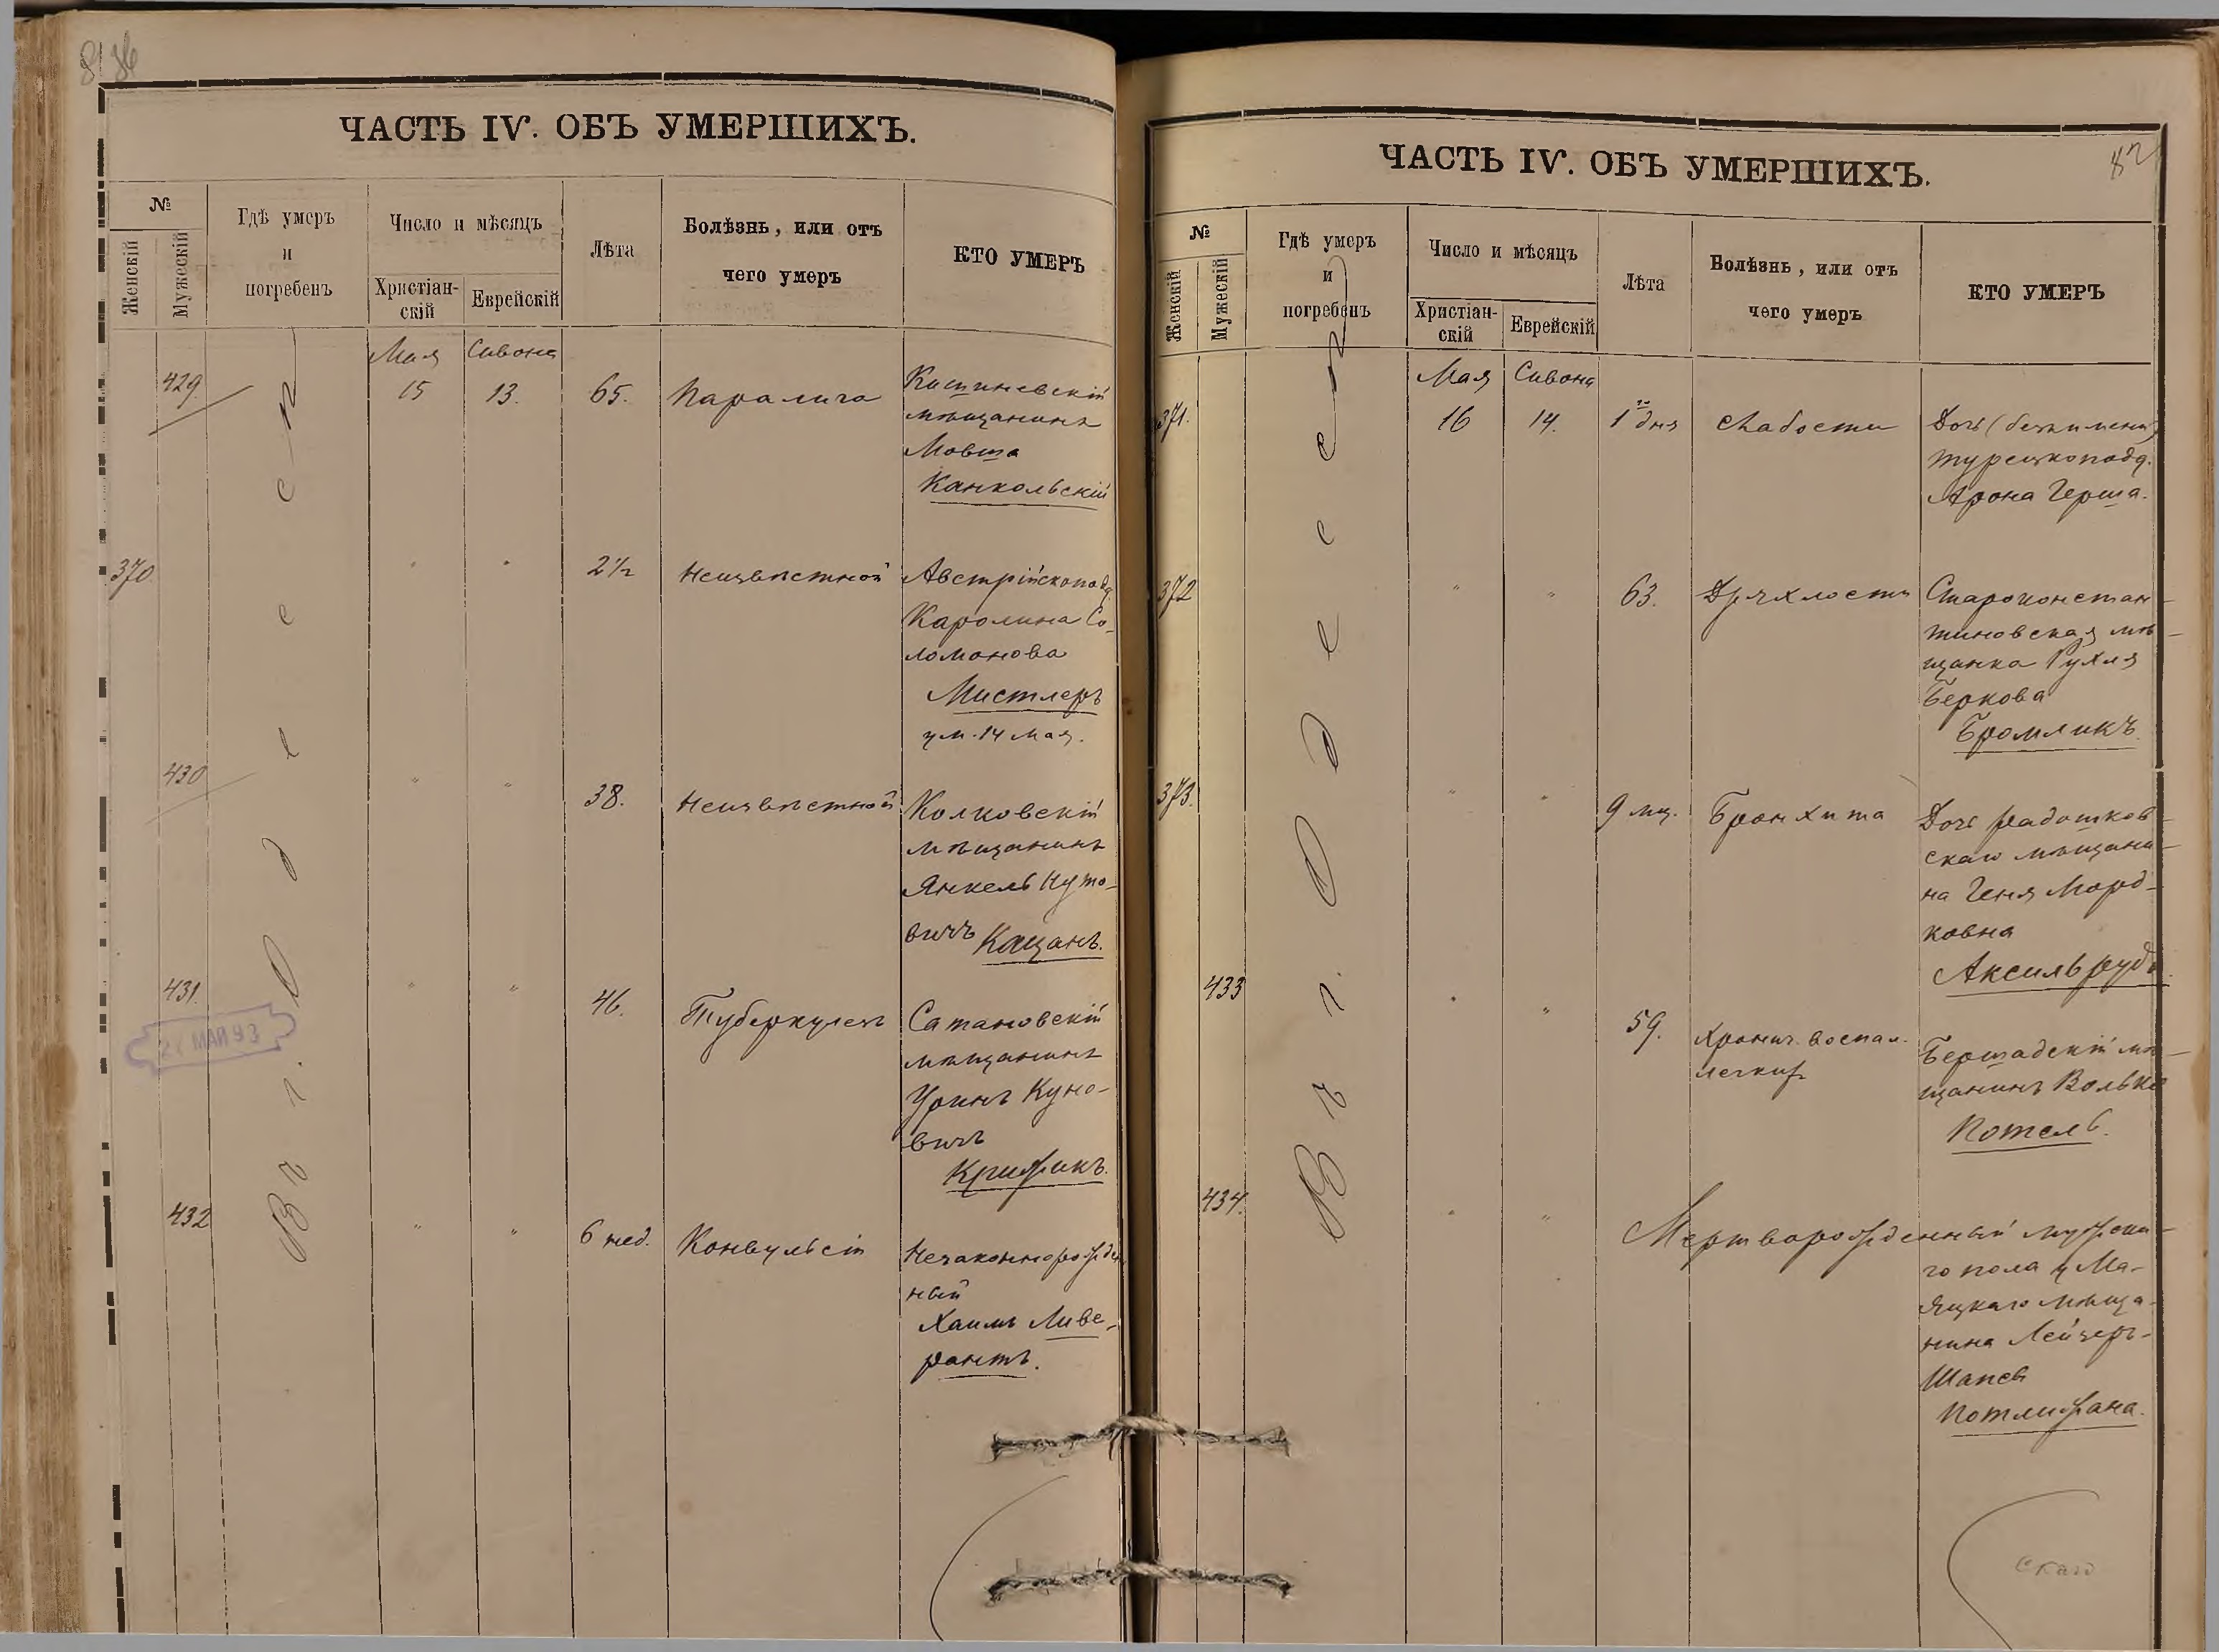 ЧАСТЬ IV. ОБЪ УМЕРШИХЪ.
№
Женскій
Мужескій
Гдѣ умеръ
и
погребенъ
Число и мѣсяцъ
Христіан-
скій
Еврейскій
Лѣта
Болѣзнь, или отъ
чего умеръ
КТО УМЕРЪ
Въ г. Одессѣ
Мая Сивона
429 15 13. 65. Паралича Кишиневскій
мѣщанинъ
Мовша
Канкольскій
370 " " 2½ Неизвѣстной Австрійскопод.
Каролина Со-
ломонова
Мистлеръ
ум. 14 мая.
430 " " 38. Неизвѣстной Колковскій
мѣщанинъ
Янкель Нуто-
вичъ Кацанъ.
431. " " 46. Туберкулезъ Сатановскій
мѣщанинъ
Уринъ Куно-
вичъ
Крижикъ.
МАЙ 93
432 " " 6 нед. Конвульсій Незаконнорожден
ный
Хаимъ Ливе-
рантъ.
ЧАСТЬ IV. ОБЪ УМЕРШИХЪ.
82
№
Женскій
Мужескій
Гдѣ умеръ
и
погребенъ
Число и мѣсяцъ
Христіан-
скій
Еврейскій
Лѣта
Болѣзнь, или отъ
чего умеръ
КТО УМЕРЪ
Въ г. Одессѣ
Мая Сивона
371. 16 14. 1го дня Слабости Дочь (безъ имени)
турецкопод.
Арона Герша.
372 " " 63. Дряхлости Староконстан-
тиновская мѣ-
щанка Рухля
Беркова
Бромликъ
373. " " 9 мц. Бронхита Дочь радошков-
скаго мѣщани-
на Геня Морд-
ковна
Аксильрудъ.
433 " " 59. Хронич. воспал.
легкихъ
Бершадскій мѣ-
щанинъ Волько
Потель.
434. " " Мертворожденный мужска-
го пола у Ма-
яцкаго мѣща-
нина Лейзеръ-
Шапсы
Потлижана.
скаго